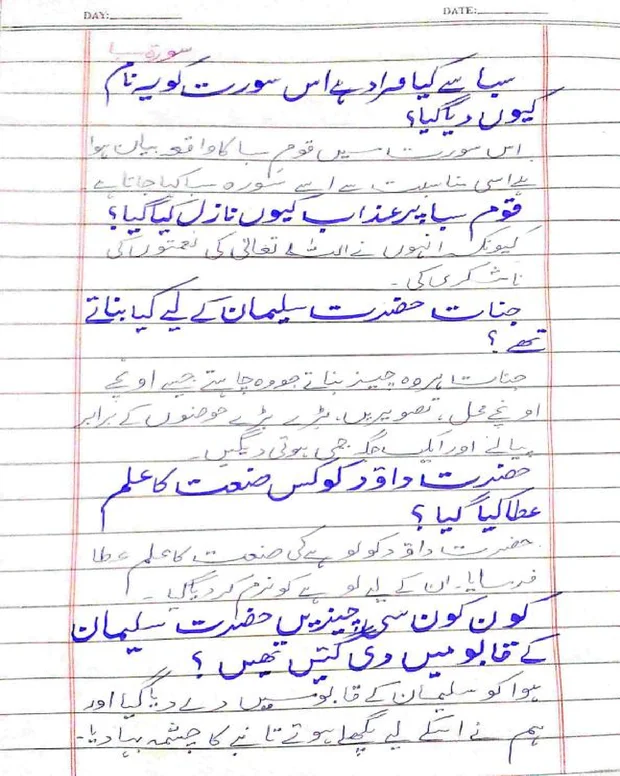 DAY: DATE:
سورۃ سبا
سبا سے کیا مراد ہے اس سورت کو یہ نام
کیوں دیا گیا؟
اس سورت میں قوم سبا کا واقعہ بیان ہوا
ہے اسی مناسبت سے اسے سورہ سبا کہا جاتا ہے
قوم سبا پر عذاب کیوں نازل کیا گیا؟
کیونکہ انہوں نے اللہ تعالی کی نعمتوں کی
ناشکری کی۔
جنات حضرت سلیمان کے لیے کیا بناتے
تھے؟
جنات ہر وہ چیز بناتے جو وہ چاہتے جیسے اونچے
اونچے محل، تصویریں، بڑے بڑے حوضوں کے برابر
پیالے اور ایک جگہ جمی ہوئی دیگیں۔
حضرت داؤد کو کس صنعت کا علم
عطا کیا گیا؟
حضرت داؤد کو لوہے کی صنعت کا علم عطا
فرمایا۔ ان کے لیے لوہے کو نرم کر دیا گیا۔
کون کون سی چیزیں حضرت سلیمان
کے قابو میں دی گئیں تھیں؟
ہوا کو سلیمان کے قابو میں دے دیا گیا اور
ہم نے اسکے لیے پگھلے ہوئے تانبے کا چشمہ بہا دیا۔